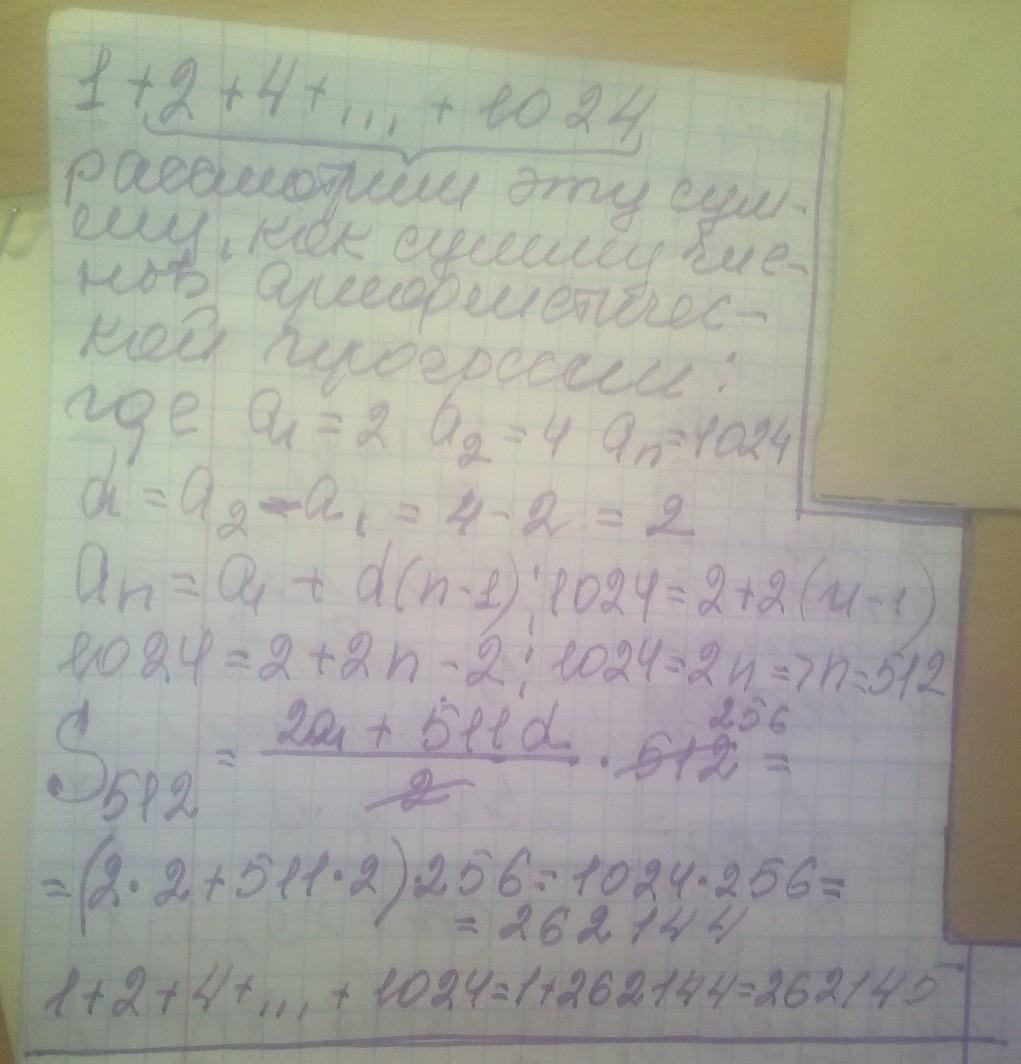 1 + 2 + 4 + ... + 1024
рассмотрим эту сум-
му, как сумму чле-
нов арифметичес-
кой прогрессии:
где a₁ = 2 a₂ = 4 aₙ = 1024
d = a₂ - a₁ = 4 - 2 = 2
aₙ = a₁ + d(n-1); 1024 = 2 + 2(n-1)
1024 = 2 + 2n - 2; 1024 = 2n => n = 512
S₅₁₂ = (2a₁ + 511d)/2 · 512 256 =
= (2·2 + 511·2)·256 = 1024·256 =
= 262144
1 + 2 + 4 + ... + 1024 = 1 + 262144 = 262145